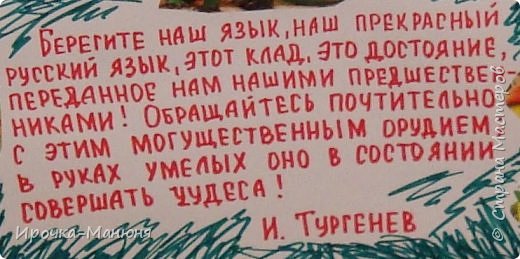 Берегите наш язык, наш прекрасный
русский язык, этот клад, это достояние,
переданное нам нашими предшествен
никами! Обращайтесь почтительно
с этим могущественным орудием,
в руках умелых оно в состоянии
совершать чудеса!
И. Тургенев
Ирочка-Манюня
© Страна Мастеров